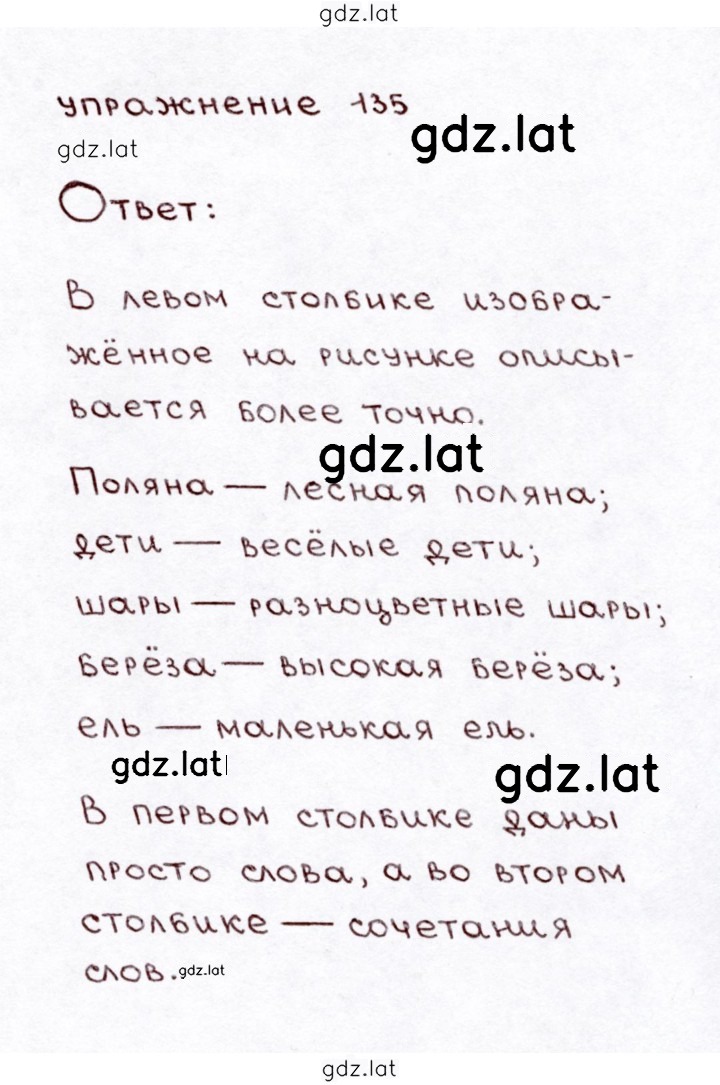 gdz.lat
упражнение 135
gdz.lat
gdz.lat
Ответ:
В левом столбике изобра-
жённое на рисунке описы-
вается более точно.
gdz.lat
Поляна — лесная поляна;
дети — весёлые дети;
шары — разноцветные шары;
берёза — высокая берёза;
ель — маленькая ель.
gdz.lat
gdz.lat
В первом столбике даны
просто слова, а во втором
столбике — сочетания
слов.
gdz.lat
gdz.lat